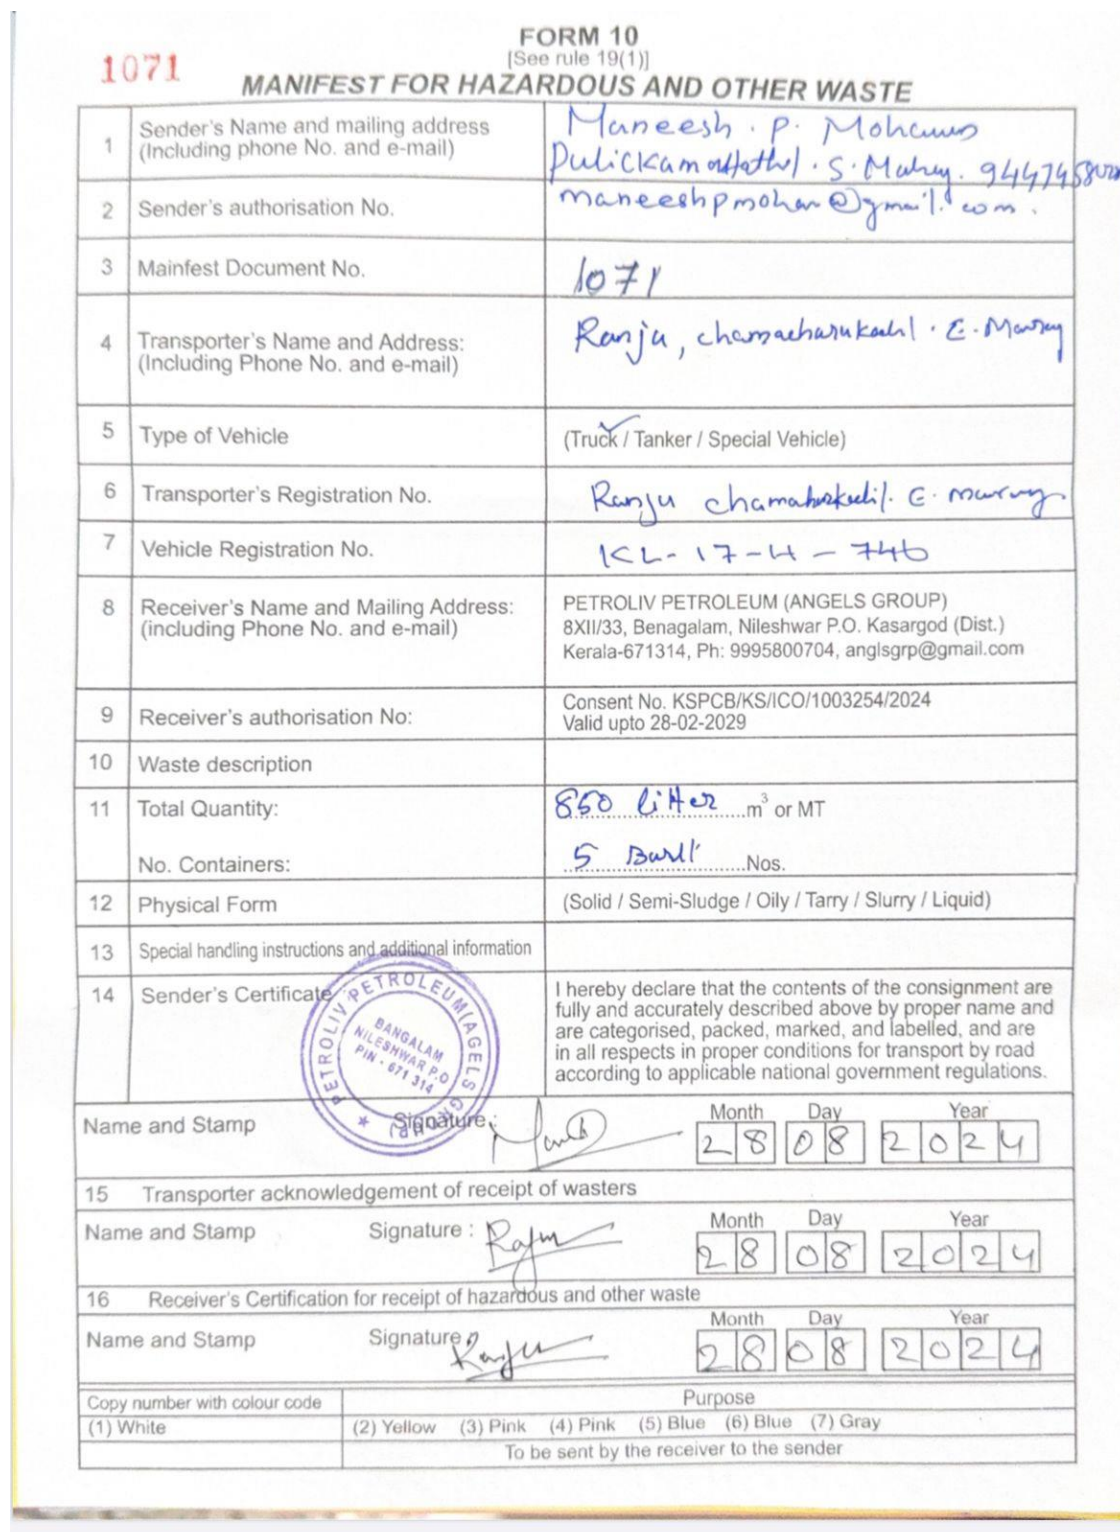 FORM 10
[See rule 19(1)]
1071
MANIFEST FOR HAZARDOUS AND OTHER WASTE
1 Sender's Name and mailing address
(Including phone No. and e-mail)
Maneesh . P. Mohanan
2 Sender's authorisation No.
maneeshpmohan@gmail.com.
3 Mainfest Document No.
1071
4 Transporter's Name and Address:
(Including Phone No. and e-mail)
Ranju,
5 Type of Vehicle
(Truck / Tanker / Special Vehicle)
6 Transporter's Registration No.
Ranju
7 Vehicle Registration No.
KL-17-H-746
8 Receiver's Name and Mailing Address:
(including Phone No. and e-mail)
PETROLIV PETROLEUM (ANGELS GROUP)
8XII/33, Benagalam, Nileshwar P.O. Kasargod (Dist.)
Kerala-671314, Ph: 9995800704, anglsgrp@gmail.com
9 Receiver's authorisation No:
Consent No. KSPCB/KS/ICO/1003254/2024
Valid upto 28-02-2029
10 Waste description
11 Total Quantity:
850 litter m³ or MT
No. Containers:
5 Nos.
12 Physical Form
(Solid / Semi-Sludge / Oily / Tarry / Slurry / Liquid)
13 Special handling instructions and additional information
14 Sender's Certificate
I hereby declare that the contents of the consignment are
fully and accurately described above by proper name and
are categorised, packed, marked, and labelled, and are
in all respects in proper conditions for transport by road
according to applicable national government regulations.
PETROLIV PETROLEUM(AGELS GROUP)
BANGALAM
NILESHWAR P.O
PIN - 671 314
Month Day Year
Name and Stamp Signature :
28 08 2024
15 Transporter acknowledgement of receipt of wasters
Month Day Year
Name and Stamp Signature :
28 08 2024
16 Receiver's Certification for receipt of hazardous and other waste
Month Day Year
Name and Stamp Signature
Ranju
28 08 2024
Copy number with colour code Purpose
(1) White (2) Yellow (3) Pink (4) Pink (5) Blue (6) Blue (7) Gray
To be sent by the receiver to the sender